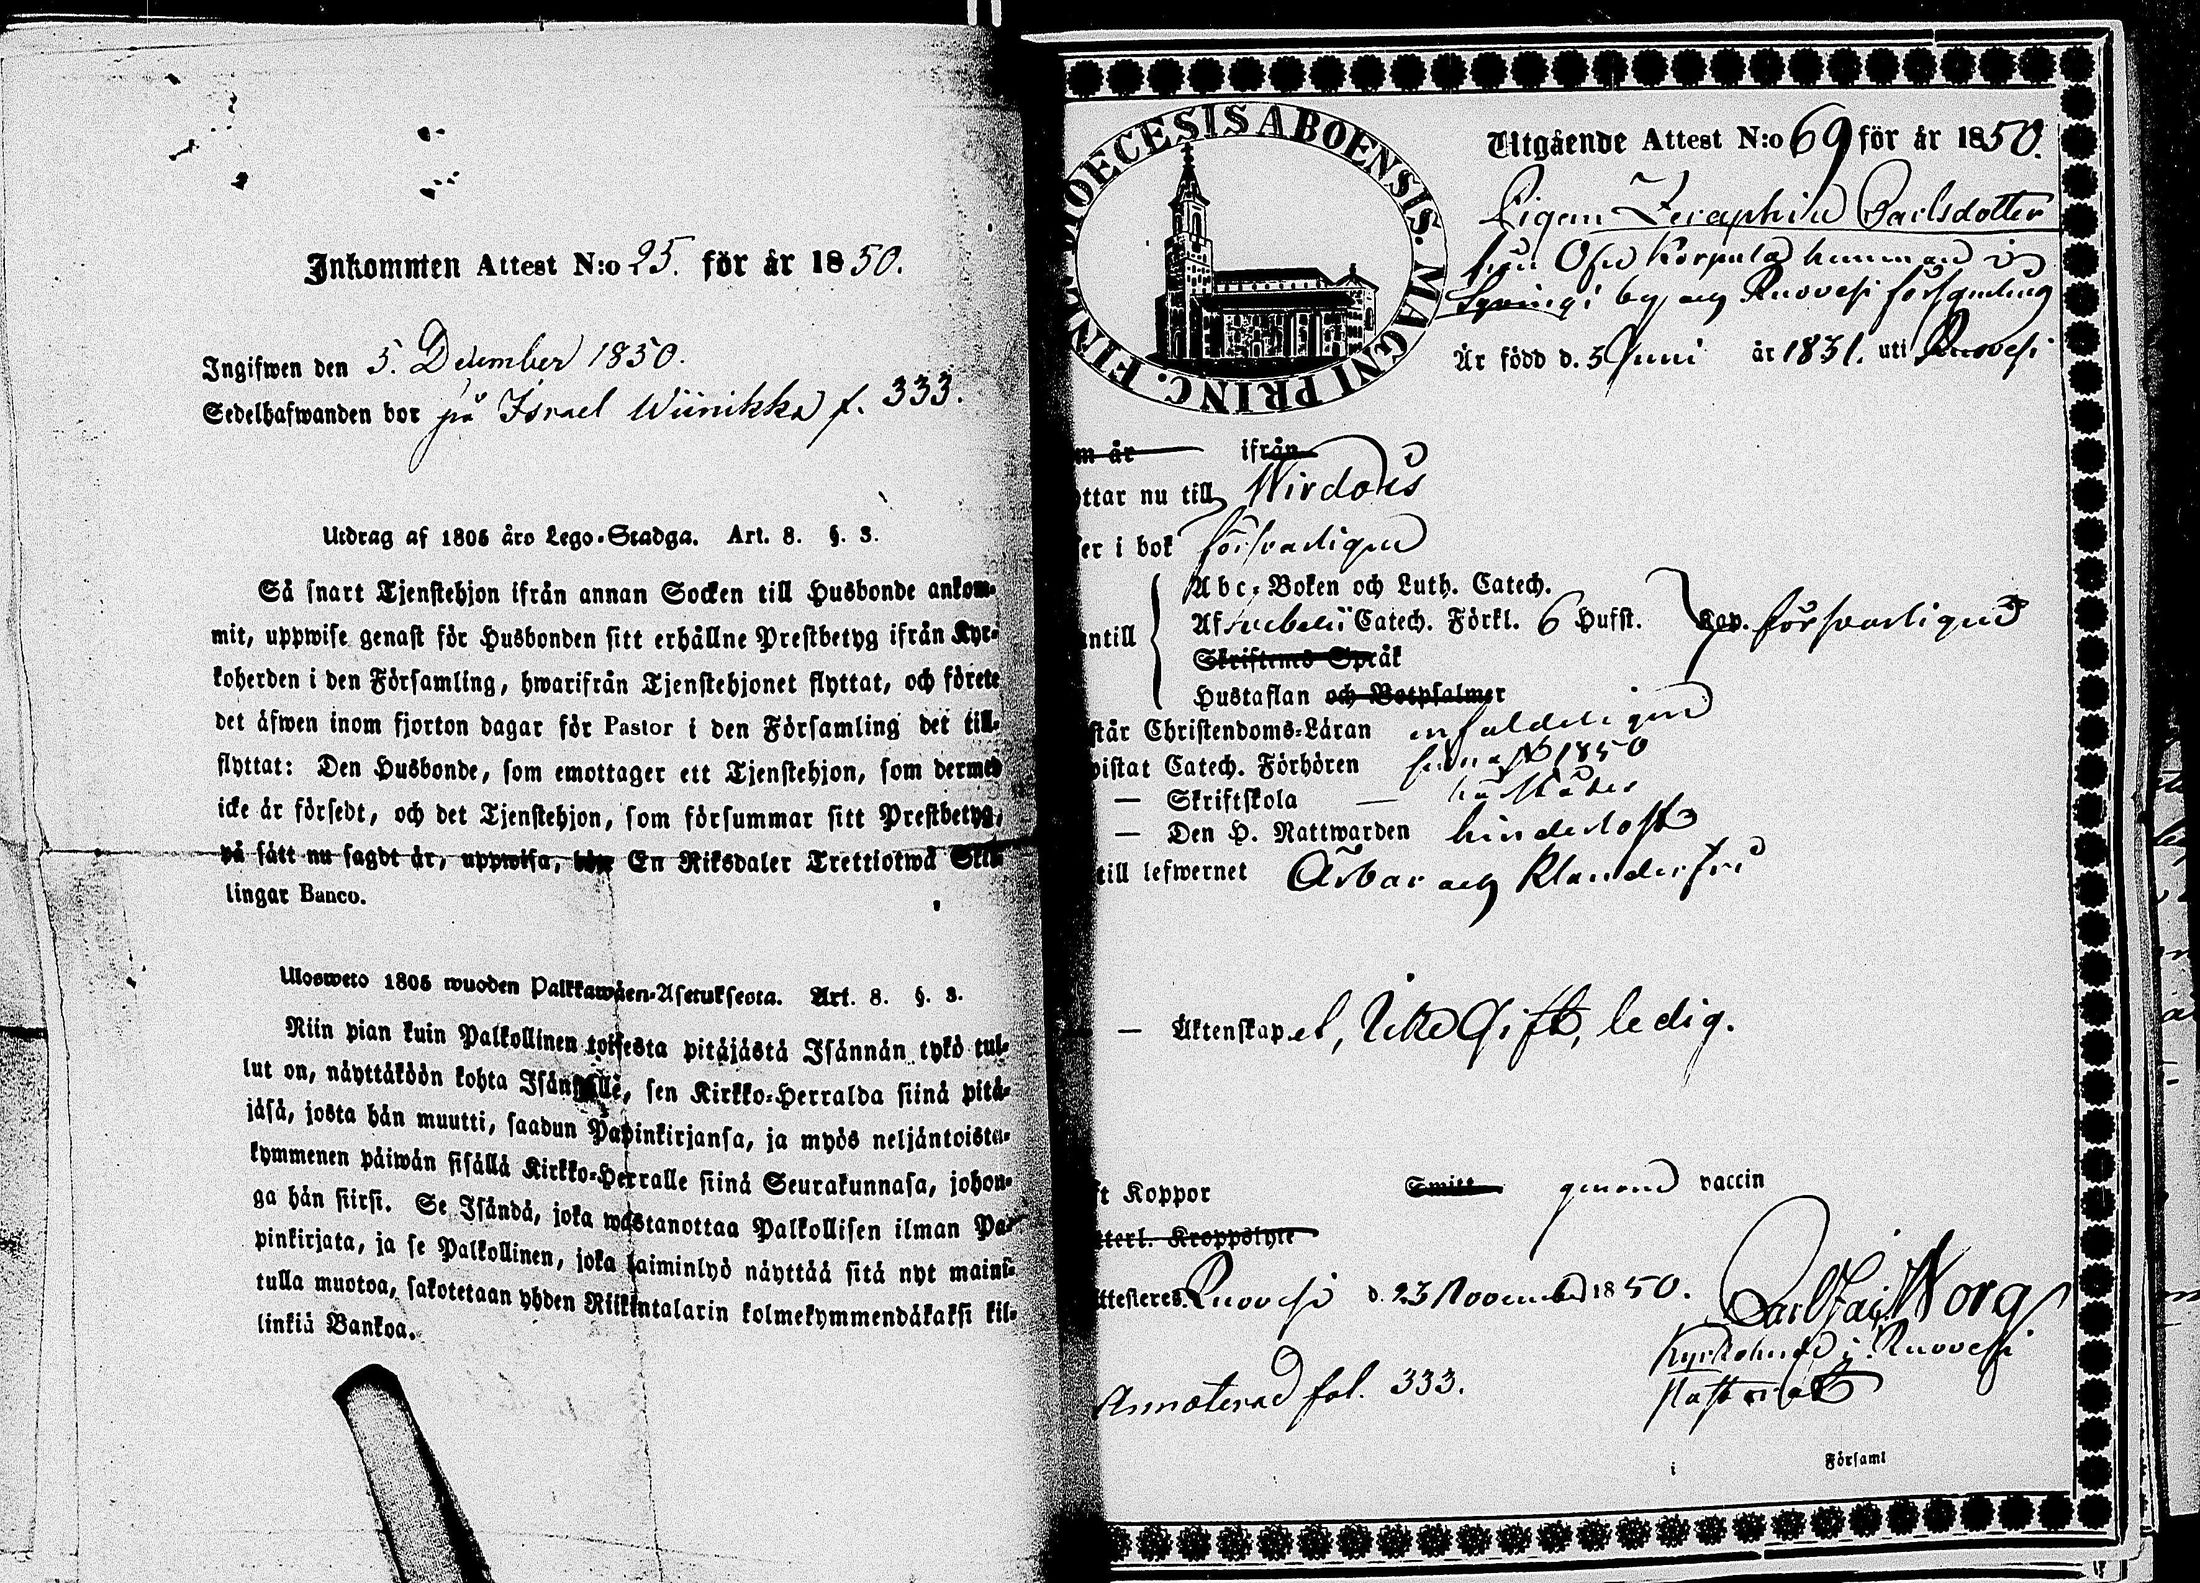 Inkommen Attest N:o 25. för år 1850.
Ingifwen den 5. December 1850.
Sedelhafwanden bor på Israel Wiinikka f. 333.
Utdrag af 1805 års Lego-Stadga. Art. 8. §. 3.
Så snart Tjenstehjon ifrån annan Socken till Husbonde ankom-
mit, uppwise genast för Husbonden sitt erhållne Prestbetyg ifrån Kyr-
koherden i den Församling, hwarifrån Tjenstehjonet flyttat, och förete
det äfwen inom fjorton dagar för Pastor i den Församling det till-
flyttat: Den Husbonde, som emottager ett Tjenstehjon, som dermed
icke är försedt, och det Tjenstehjon, som försummar sitt Prestbetyg,
på sätt nu sagdt är, uppwisa, böte En Riksdaler Trettiotwå Skil-
lingar Banco.
Ulosweto 1805 wuoden Palkkawäen-Asetuksesta. Art. 8. §. 3.
Niin pian kuin Palkollinen toisesta pitäjästä Isännän tykö tul-
lut on, näyttäköön kohta Isännälle, sen Kirkko-Herralda siinä pitä-
jäsä, josta hän muutti, saadun Papinkirjansa, ja myös neljäntoista-
kymmenen päiwän sisällä Kirkko-Herralle siinä Seurakunnasa, johon-
ga hän siirsi. Se Isändä, joka wastanottaa Palkollisen ilman Pa-
pinkirjata, ja se Palkollinen, joka laiminlyö näyttää sitä nyt mainit-
tulla muotoa, sakotetaan yhden Riikintalarin kolmekymmendäkaksi kil-
linkiä Bankoa.
DIOECESIS ABOENSIS. MAGNI PRINC. FINL.
Utgående Attest N:o 69 för år 1850.
Pigan Zeraphia Carlsdotter
från Korpula hemman i
by och Ruovesi församling
Är född d. 5 Juni år 1831. uti Ruovesi
m år ifrån
ttar nu till Wirdois
ser i bok försvarligen
Abc-Boken och Luth. Catech.
Af Svebelii Catech. Förkl. 6 Hufst. Kap. försvarligen
antill
Skriftens Språk
Hustaflan och Botpsalmer
står Christendoms-Läran enfaldeligen
wistat Catech. Förhören sednast 1850
— Skriftskola — likaledes
— Den H. Nattwarden hinderlöst
till lefwernet Ärbar och Klanderfri
— Äktenskapet, Icke Gift, ledig.
ft Koppor Smitt genom vaccin
tterl. Kroppslyte
Attesteres Ruovesi d. 23 November 1850.
Carl Worg
Kyrkoherde i Ruovesi
Annoterad fol. 333.
i Församl